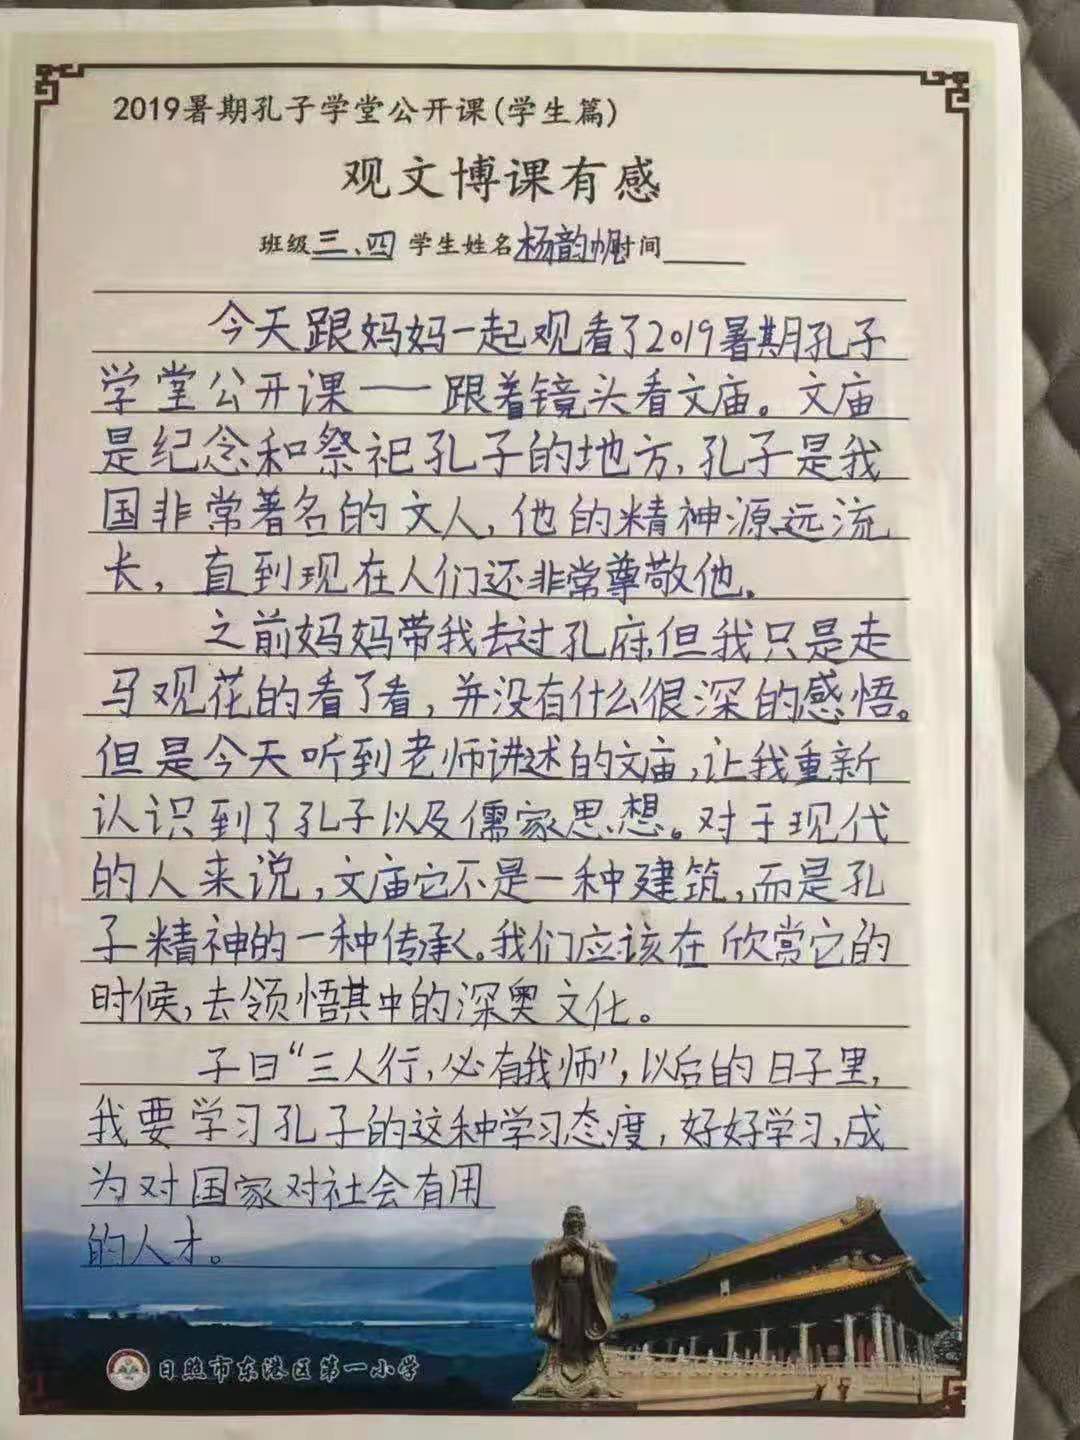 2019暑期孔子学堂公开课(学生篇)
观文博课有感
班级三、四 学生姓名杨韵帆时间
今天跟妈妈一起观看了2019暑期孔子
学堂公开课——跟着镜头看文庙。文庙
是纪念和祭祀孔子的地方,孔子是我
国非常著名的文人,他的精神源远流
长，直到现在人们还非常尊敬他。
之前妈妈带我去过孔府,但我只是走
马观花的看了看，并没有什么很深的感悟。
但是今天听到老师讲述的文庙,让我重新
认识到了孔子以及儒家思想。对于现代
的人来说,文庙它不是一种建筑,而是孔
子精神的一种传承。我们应该在欣赏它的
时候,去领悟其中的深奥文化。
子曰“三人行,必有我师”,以后的日子里,
我要学习孔子的这种学习态度,好好学习,成
为对国家对社会有用
的人才。
日照市东港区第一小学